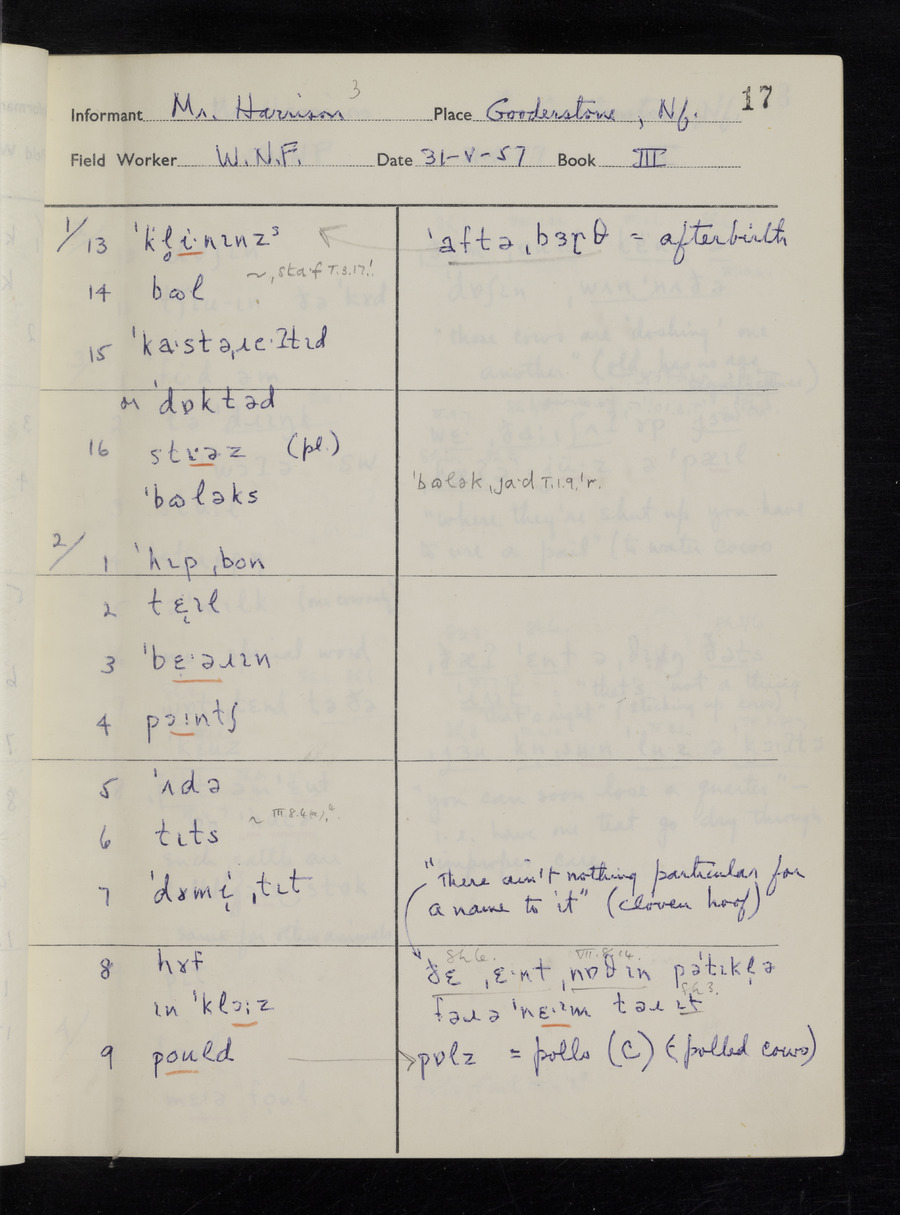 17
Informant Mr. Harrison 3 Place Gooderstone, Nf.
Field Worker W.N.F. Date 31-V-57 Book III
1/13 ˈkl̥iˑnɪnz³ ˈaftəˌbɜɽθ = afterbirth
14 bɷl ~ˌstaˑf T.3.17.!
15 ˈkaˑstəˌɹeˑʔtɪd
or ˈdɒktəd
16 stɪəz (pl.)
ˈbɷləks ˈbɷləkˌjaˑd T.1.9,ˈr.
2/1 ˈhɪpˌbon
2 tɛ̨ɪl
3 ˈbɛ̨ˑəɹɪn
4 pɔɪntʃ
5 ˈʌdə
6 tɪts ~ III.8.4(a),⁴
7 ˈdɤmi̜ˌtɪt "There ain't nothing particular for
a name to it" (cloven hoof)
8 hɤf ðɛ ˌɛˑnt ˌnɒðɪn pəˈtɪkl̩ə
ɪn ˈklɔːz fəɹə ˈnɛˑɪm təɹ ɪt
9 pould pɒlz = polls (C) (polled cows)